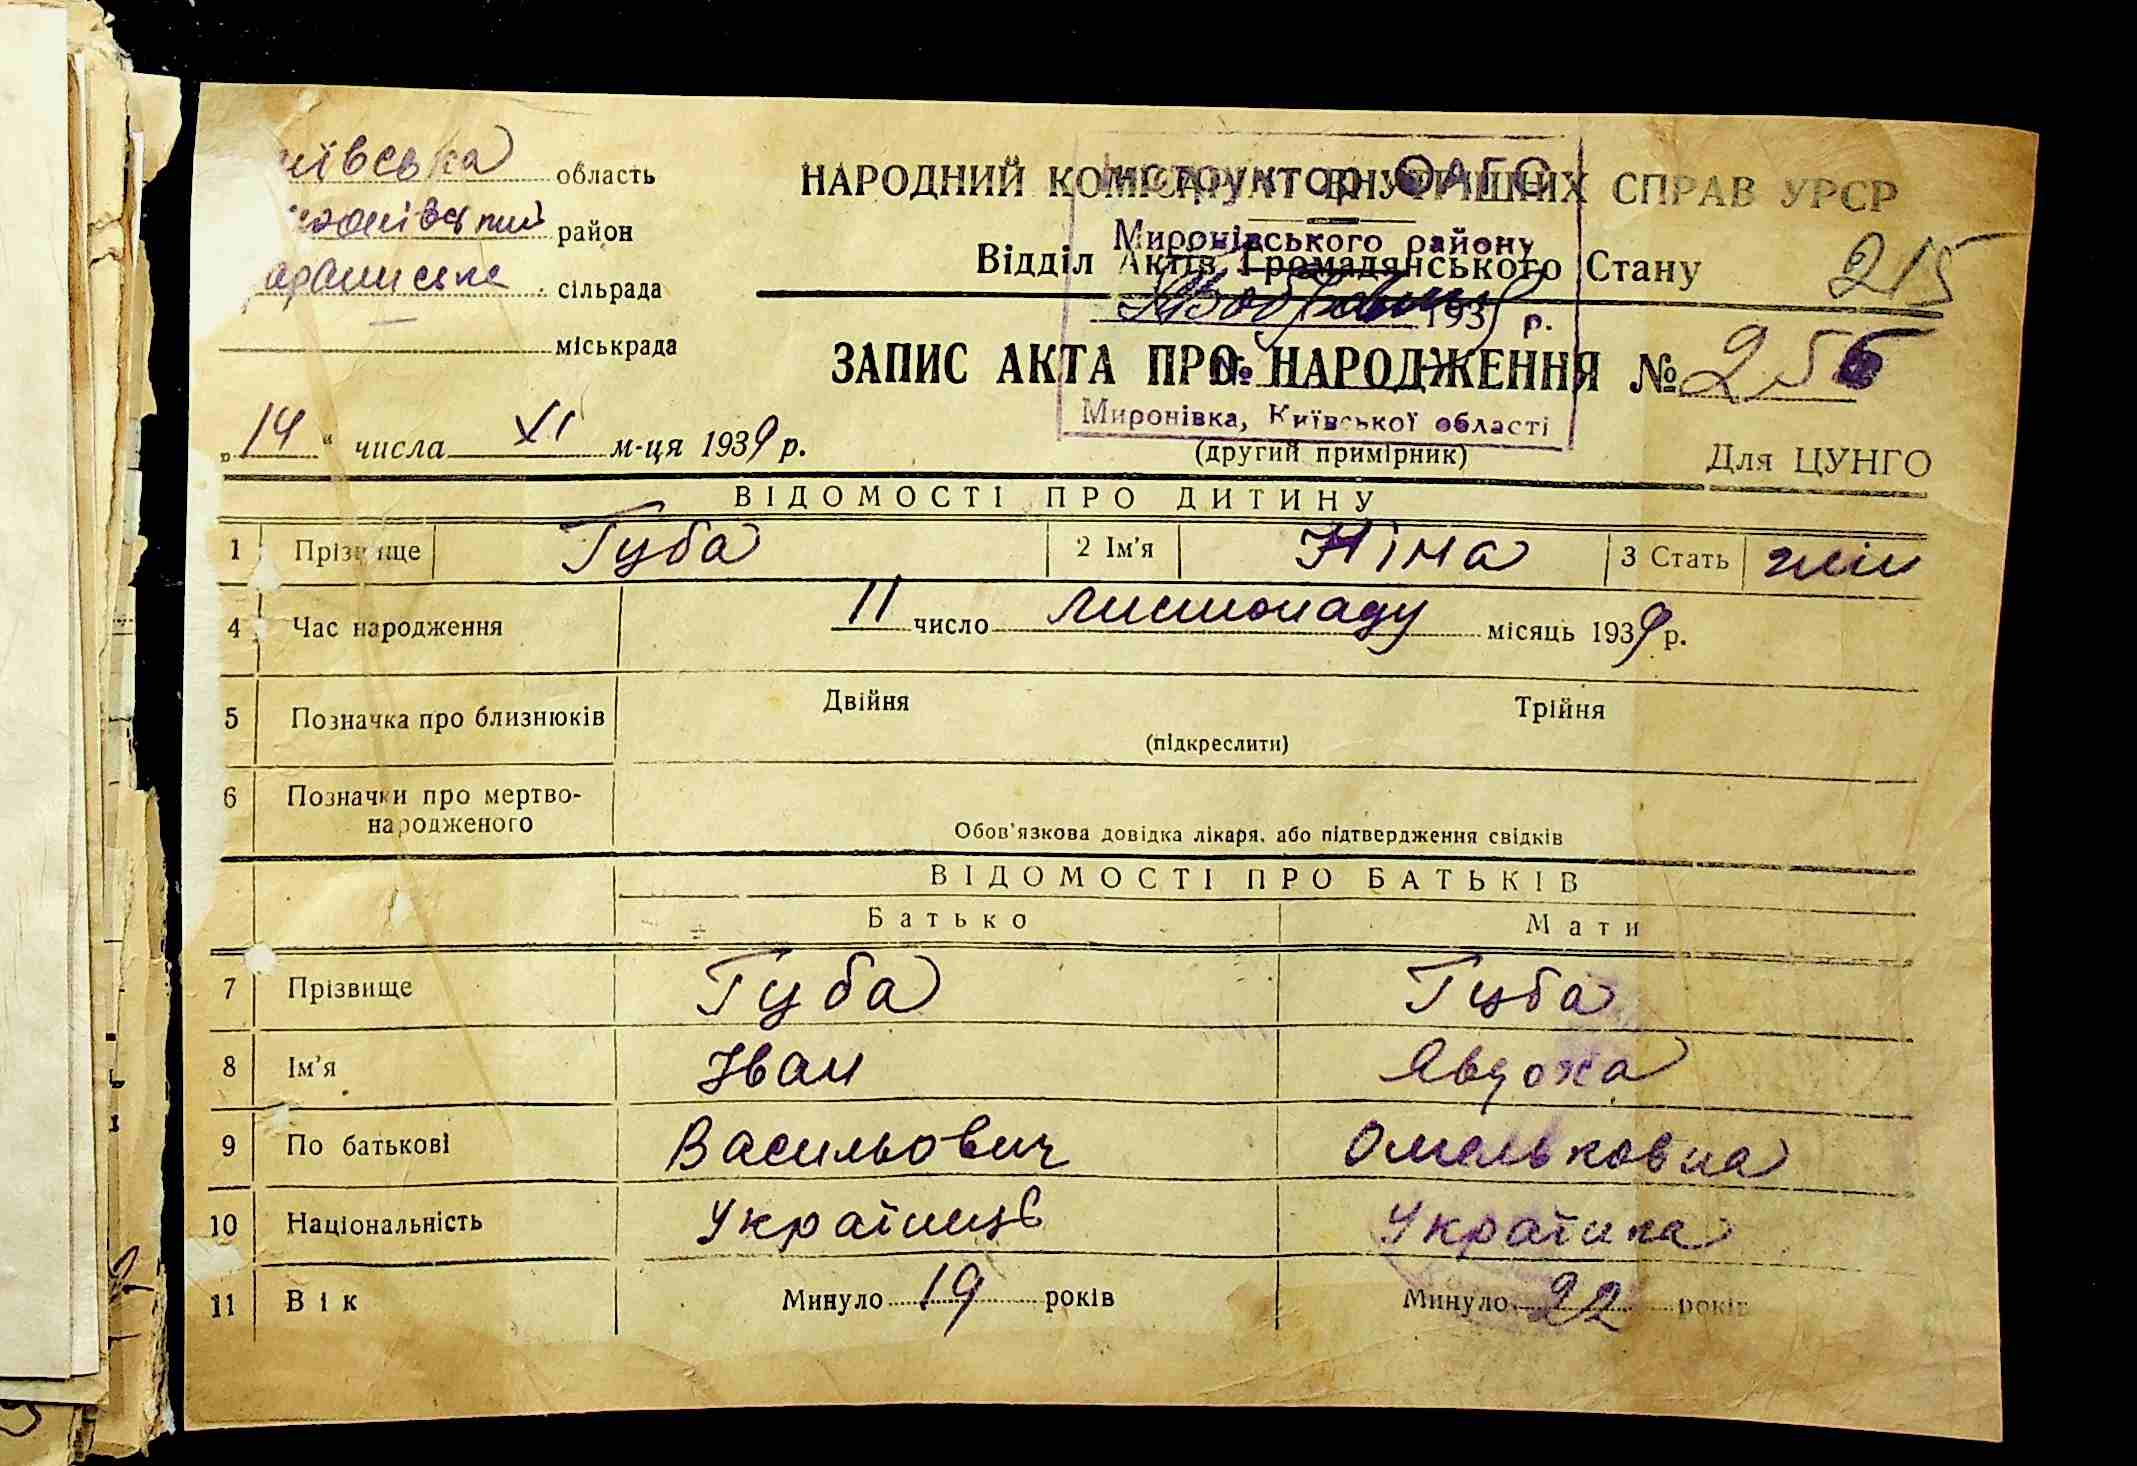 иївська область
район
сільрада
міськрада
НАРОДНИЙ КОМІСАРІАТ ВНУТРІШНІХ СПРАВ УРСР
Відділ Актів Громадянського Стану
215
Інструктор ОАГС
Миронівського району
193 р.
№
Миронівка, Київської області
ЗАПИС АКТА ПРО НАРОДЖЕННЯ № 256
„14“ числа XI м-ця 1939 р.
(другий примірник)
Для ЦУНГО
ВІДОМОСТІ ПРО ДИТИНУ
1 Прізвище Губа 2 Ім'я Ніна 3 Стать жін
4 Час народження 11 число листопаду місяць 1939 р.
5 Позначка про близнюків Двійня Трійня
(підкреслити)
6 Позначки про мертво-
народженого
Обов'язкова довідка лікаря, або підтвердження свідків
ВІДОМОСТІ ПРО БАТЬКІВ
Батько Мати
7 Прізвище Губа Губа
8 Ім'я Іван Явдоха
9 По батькові Васильович Омельковна
10 Національність Українець Українка
11 Вік Минуло 19 років Минуло 22 років